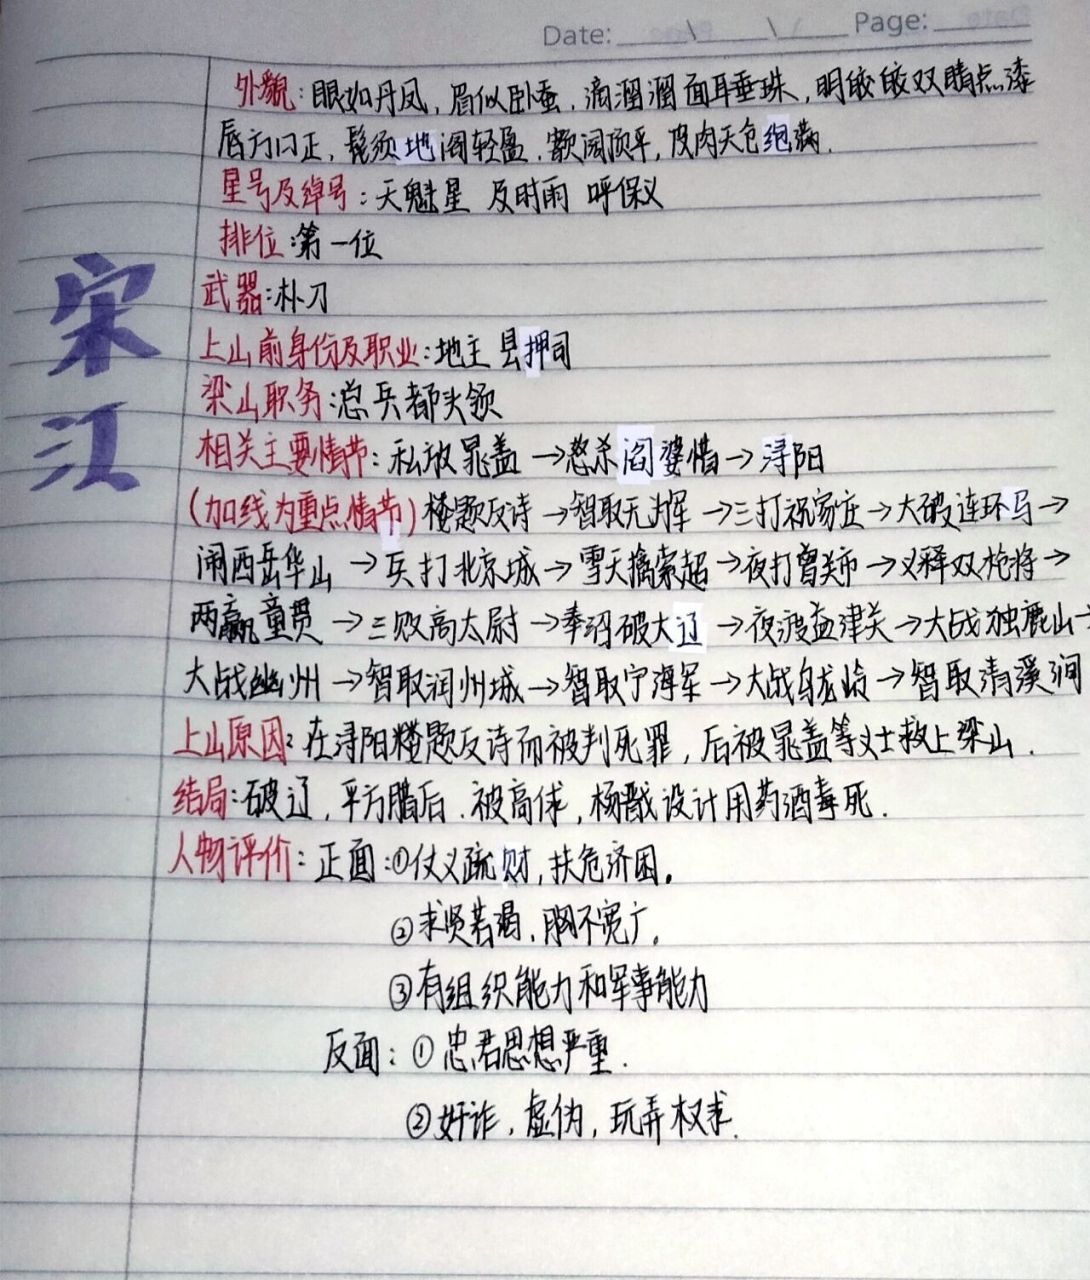 Date: \ \ Page:
宋江
外貌:眼如丹凤,眉似卧蚕,滴溜溜面耳垂珠,明皎皎双睛点漆
唇方口正,髭须地阁轻盈.额阔顶平,皮肉天仓饱满.
星号及绰号:天魁星 及时雨 呼保义
排位:第一位
武器:朴刀
上山前身份及职业:地主 县押司
梁山职务:总兵都头领
相关主要情节:私放晁盖→怒杀阎婆惜→浔阳
(加线为重点情节)楼题反诗→智取无为军→三打祝家庄→大破连环马→
闹西岳华山→兵打北京城→雪天擒索超→夜打曾头市→义释双枪将→
两赢童贯→三败高太尉→奉诏破大辽→夜渡益津关→大战独鹿山→
大战幽州→智取润州城→智取宁海军→大战乌龙岭→智取清溪洞
上山原因:在浔阳楼题反诗而被判死罪,后被晁盖等义士救上梁山.
结局:破辽,平方腊后.被高俅,杨戬设计用药酒毒死.
人物评价:正面:①仗义疏财,扶危济困。
②求贤若渴,胸怀宽广。
③有组织能力和军事能力
反面:①忠君思想严重.
②奸诈,虚伪,玩弄权术.